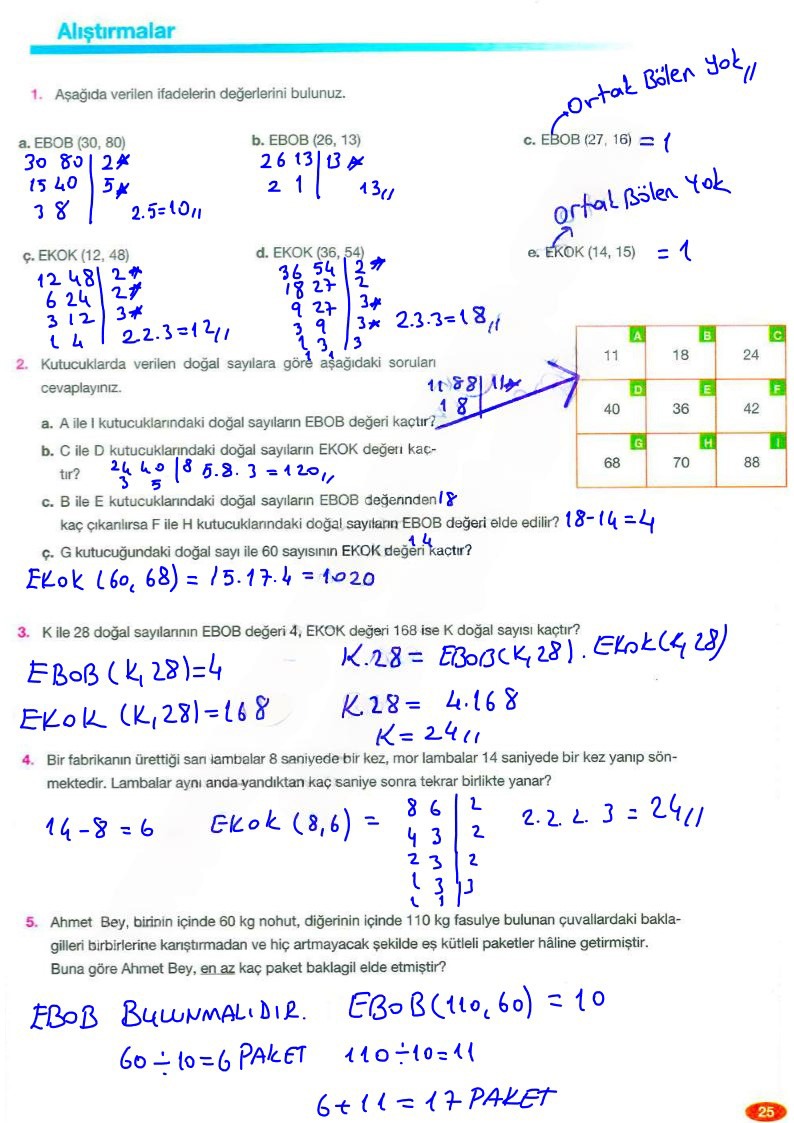 Alıştırmalar
1. Aşağıda verilen ifadelerin değerlerini bulunuz.
Ortak Bölen Yok //
a. EBOB (30, 80)
30 80 | 2*
15 40 | 5*
3 8
2.5=10//
b. EBOB (26, 13)
26 13 | 13*
2 1
13//
c. EBOB (27, 16) = 1
Ortak Bölen Yok
ç. EKOK (12, 48)
12 48 | 2*
6 24 | 2*
3 12 | 3*
1 4
2.2.3=12//
d. EKOK (36, 54)
36 54 | 2*
18 27 | 2
9 27 | 3*
3 9 | 3*
1 3 | 3
1 1
2.3.3=18//
e. EKOK (14, 15) = 1
2. Kutucuklarda verilen doğal sayılara göre aşağıdaki soruları
cevaplayınız.
11 88 | 11*
1 8
a. A ile I kutucuklarındaki doğal sayıların EBOB değeri kaçtır?
b. C ile D kutucuklarındaki doğal sayıların EKOK değeri kaç-
tır? 24 40 | 8 5.8.3 = 120//
3 5
c. B ile E kutucuklarındaki doğal sayıların EBOB değerinden 18
kaç çıkarılırsa F ile H kutucuklarındaki doğal sayıların EBOB değeri elde edilir? 18-14=4
14
ç. G kutucuğundaki doğal sayı ile 60 sayısının EKOK değeri kaçtır?
EKOK (60, 68) = 15.17.4 = 1020
A B C
11 18 24
D E F
40 36 42
G H I
68 70 88
3. K ile 28 doğal sayılarının EBOB değeri 4, EKOK değeri 168 ise K doğal sayısı kaçtır?
EBOB (K, 28)=4
K.28 = EBOB(K, 28) . EKOK(K, 28)
EKOK (K, 28)=168
K.28 = 4.168
K = 24//
4. Bir fabrikanın ürettiği sarı lambalar 8 saniyede bir kez, mor lambalar 14 saniyede bir kez yanıp sön-
mektedir. Lambalar aynı anda yandıktan kaç saniye sonra tekrar birlikte yanar?
14-8 = 6
EKOK (8,6) =
8 6 | 2
4 3 | 2
2 3 | 2
1 3 | 3
1 1
2.2.2.3 = 24//
5. Ahmet Bey, birinin içinde 60 kg nohut, diğerinin içinde 110 kg fasulye bulunan çuvallardaki bakla-
gilleri birbirlerine karıştırmadan ve hiç artmayacak şekilde eş kütleli paketler hâline getirmiştir.
Buna göre Ahmet Bey, en az kaç paket baklagil elde etmiştir?
EBOB BULUNMALIDIR. EBOB(110, 60) = 10
60÷10=6 PAKET 110÷10=11
6+11=17 PAKET
25